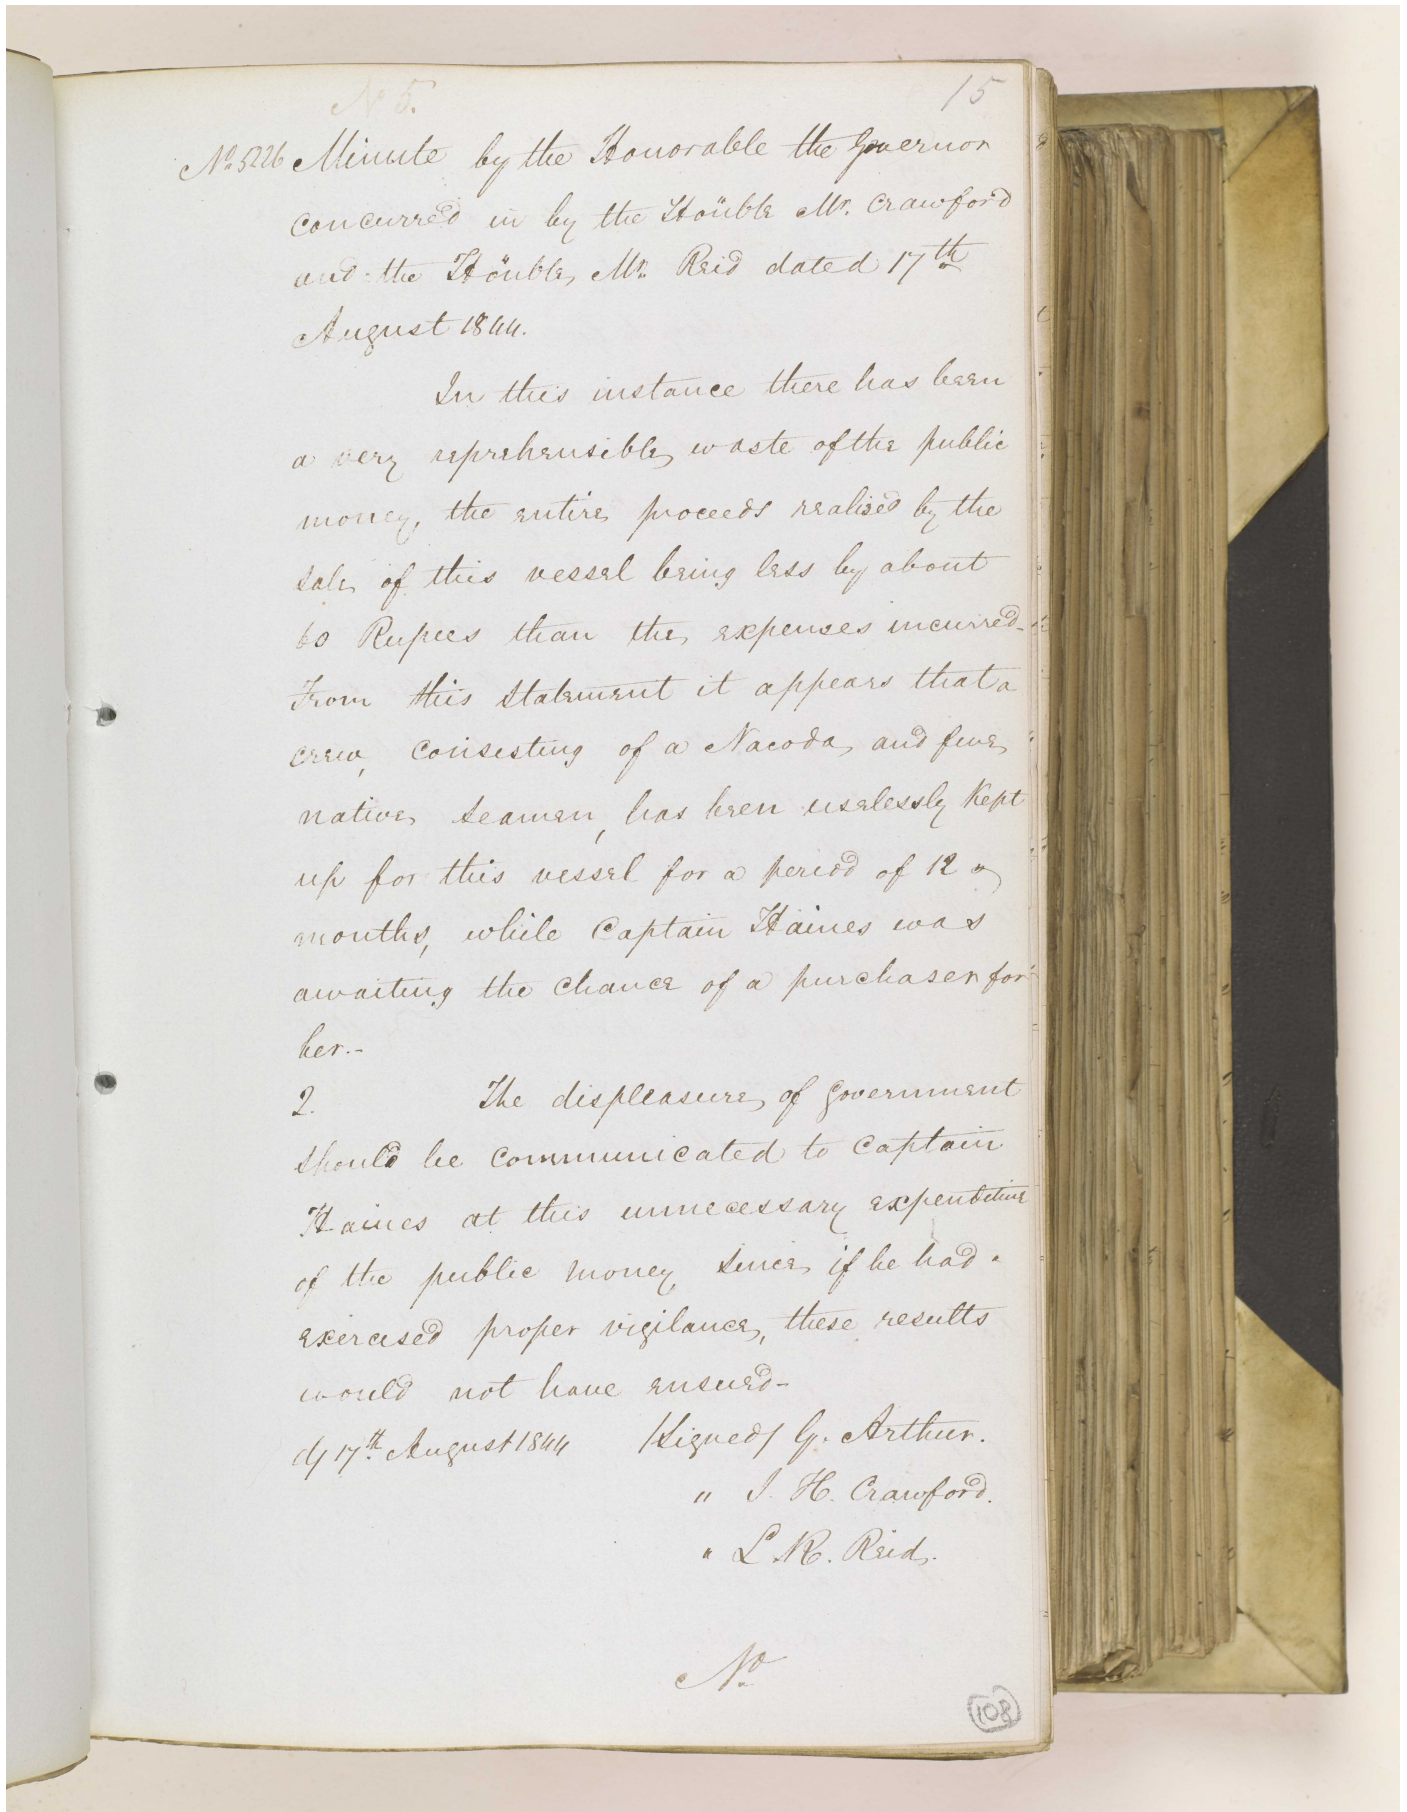 N 5.
15
No. 5226 Minute by the Honorable the Governor
concurred in by the Honble Mr. Crawford
and the Honble Mr. Reid dated 17th
August 1844.
In this instance there has been
a very reprehensible waste of the public
money, the entire proceeds realised by the
sale of this vessel being less by about
60 Rupees than the expenses incurred-
From this statement it appears that a
crew, consisting of a Nacoda and five
native seamen, has been uselessly kept
up for this vessel for a period of 12 "
months, while Captain Haines was
awaiting the chance of a purchaser for
her.-
2. The displeasure of Government
should be communicated to Captain
Haines at this unnecessary expenditure
of the public money, since if he had
exercised proper vigilance, these results
would not have ensued-
d/ 17th August 1844 /Signed/ G. Arthur.
" J. H. Crawford.
" L. R. Reid.
No
108